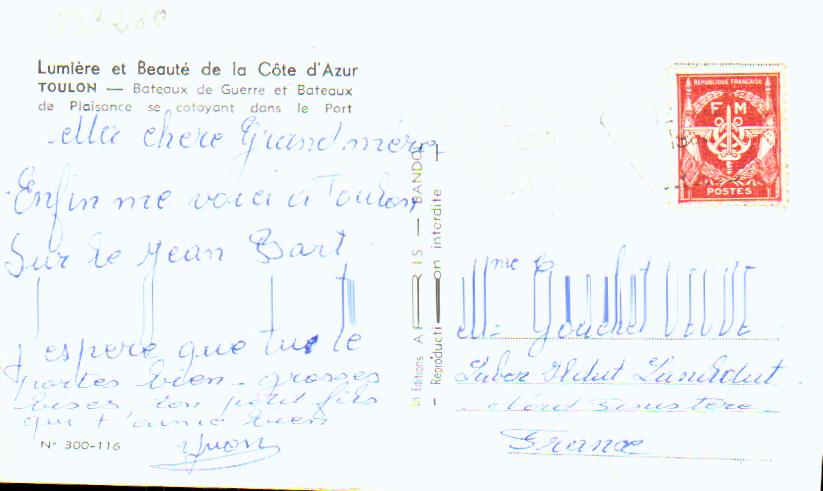 Lumière et Beauté de la Côte d'Azur
TOULON — Bateaux de Guerre et Bateaux
de Plaisance se cotoyant dans le Port
Ma chere Grand mère
Enfin me voici a Toulon
Sur le Jean Bart
j'espere que tu te
portes bien - grosses
bises, ton petit fils
qui t'aime bien
Yvon
N° 300-116
Editions — BANDOL
— Reproduction interdite —
REPUBLIQUE FRANÇAISE
F M
POSTES
Mme
Gouchet
Landudut
Nord Finistere
France